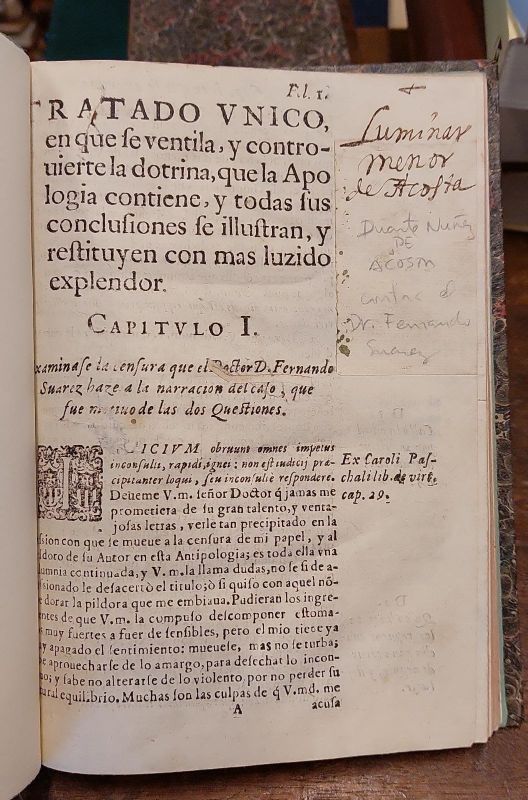 F.l. 1.
TRATADO VNICO,
en que ſe ventila, y contro-
uierte la dotrina, que la Apo
logia contiene, y todas ſus
concluſiones ſe illuſtran, y
reſtituyen con mas luzido
explendor.
CAPITVLO I.
xaminaſe la cenſura que el Doctor D. Fernando
Suarez haze a la narracion del caſo, que
fue motiuo de las dos Queſtiones.
IVDICIVM obruunt omnes impetus
inconſulti, rapidi, ignei: non eſt iudicij præ-
cipitanter loqui, ſeu inconſulte reſpondere.
Deueme V.m. ſeñor Doctor q̃ jamas me
prometiera de ſu gran talento, y venta-
joſas letras, verle tan precipitado en la
ſsion con que ſe mueue a la cenſura de mi papel, y al
doro de ſu Autor en eſta Antipologia; es toda ella vna
umnia continuada, y V.m. la llama dudas, no ſe ſi de a-
ſsionado le deſacertò el titulo; ò ſi quiſo con aquel nõ-
e dorar la pildora que me embiaua. Pudieran los ingre-
entes de que V.m. la compuſo deſcomponer eſtoma-
s muy fuertes a fuer de ſenſibles, pero el mio tiene ya
y apagado el ſentimiento: mueueſe, mas no ſe turba;
be aprouecharſe de lo amargo, para deſechar lo incon-
no; y ſabe no alterarſe de lo violento, por no perder ſu
tural equilibrio. Muchas ſon las culpas de q̃ V.md. me
A
acuſa
Ex Caroli Paſ-
chali lib. de virt.
cap. 29.
Luminar
menor
de Acosta
Duarte Nuñez
DE
ACOSTA
contra el
Dr. Fernando
Suarez